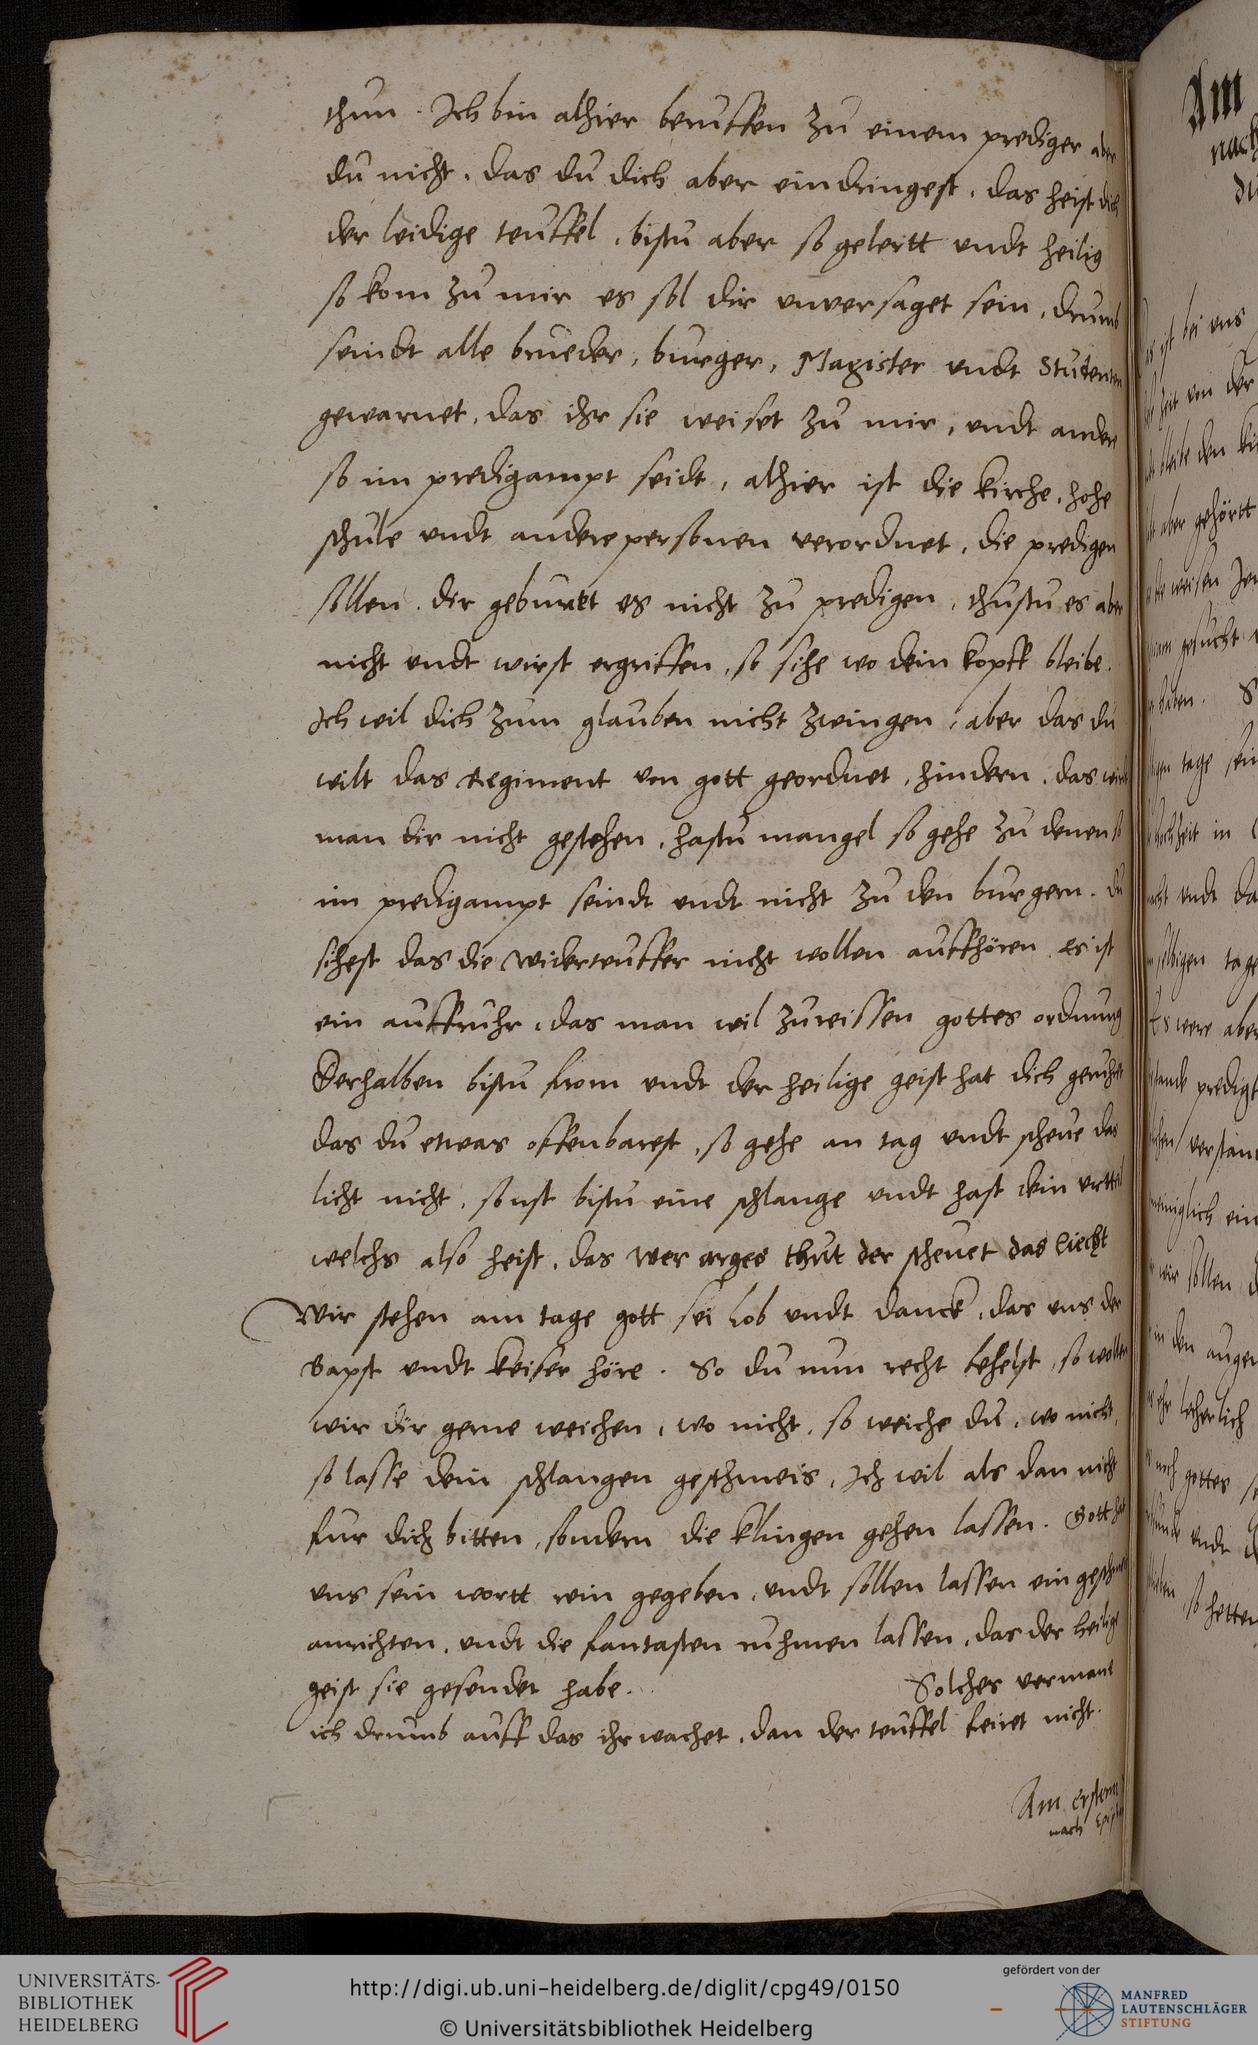 thun. Ich bin alhier beruffen zu einem prediger aber
du nicht, das du dich aber eindringest, das heist dich
der leidige teuffel, bistu aber so gelertt undt heilig
so kom zu mir es sol dir unversaget sein, drumb
seindt alle brueder, burger, Magister undt Studenten
gewarnet, das ihr sie weiset zu mir, undt andere
so im predigampt seidt, alhier ist die kirche, hohe
schule undt andere personen verordnet, die predigen
sollen. dir geburet es nicht zu predigen, thustu es aber
nicht undt wirst ergriffen, so sihe wo dein kopff bleibe.
Ich wil dich zum glauben nicht zwingen, aber das du
wilt das Regiment von gott geordnet, hindern, das wirdt
man dir nicht gestehen, hastu mangel so gehe zu denen so
im predigampt seindt undt nicht zu den burgern. Du
sihest das die widerteuffer nicht wollen auffhören, es ist
ein auffruhr, das man wil zureissen gottes ordnung
Derhalben bistu from undt der heilige geist hat dich geruhrt
das du etwas offenbarest, so gehe an tag undt scheue das
licht nicht, sonst bistu eine schlange undt hast dein urtteil
welchs also heist, das wer arges thut der scheuet das liecht
Wir stehen am tage gott sei lob undt danck, das uns der
Bapst undt keiser höre. So du nun recht lehest, so wollen
wir dir gerne weichen, wo nicht, so weiche du, wo nicht,
so lasse dein schlangen geschmeis, Ich wil als dan nicht
fur dich bitten, sondern die klingen gehen lassen. Gott hat
uns sein wortt rein gegeben, undt sollen lassen ein geschmeis
anrichten, undt die fantasten ruhmen lassen, das der heilige
geist sie gesendet habe. Solches vermane
ich drumb auff das ihr wachet, dan der teuffel feiret nicht.
Am ersten
nach Epiph
Am
nach
du
ist bei uns
zeit von der
bleibe den
aber gehörtt
weisen
gesucht
haben. S
tage sein
in
undt da
selbigen tage
Es were aber
predigt
verstan
ein
wir sollen d
in den augen
lecherlich
noch gottes
undt d
so hetten
UNIVERSITÄTS-
BIBLIOTHEK
HEIDELBERG
http://digi.ub.uni-heidelberg.de/diglit/cpg49/0150
© Universitätsbibliothek Heidelberg
gefördert von der
MANFRED
LAUTENSCHLÄGER
STIFTUNG